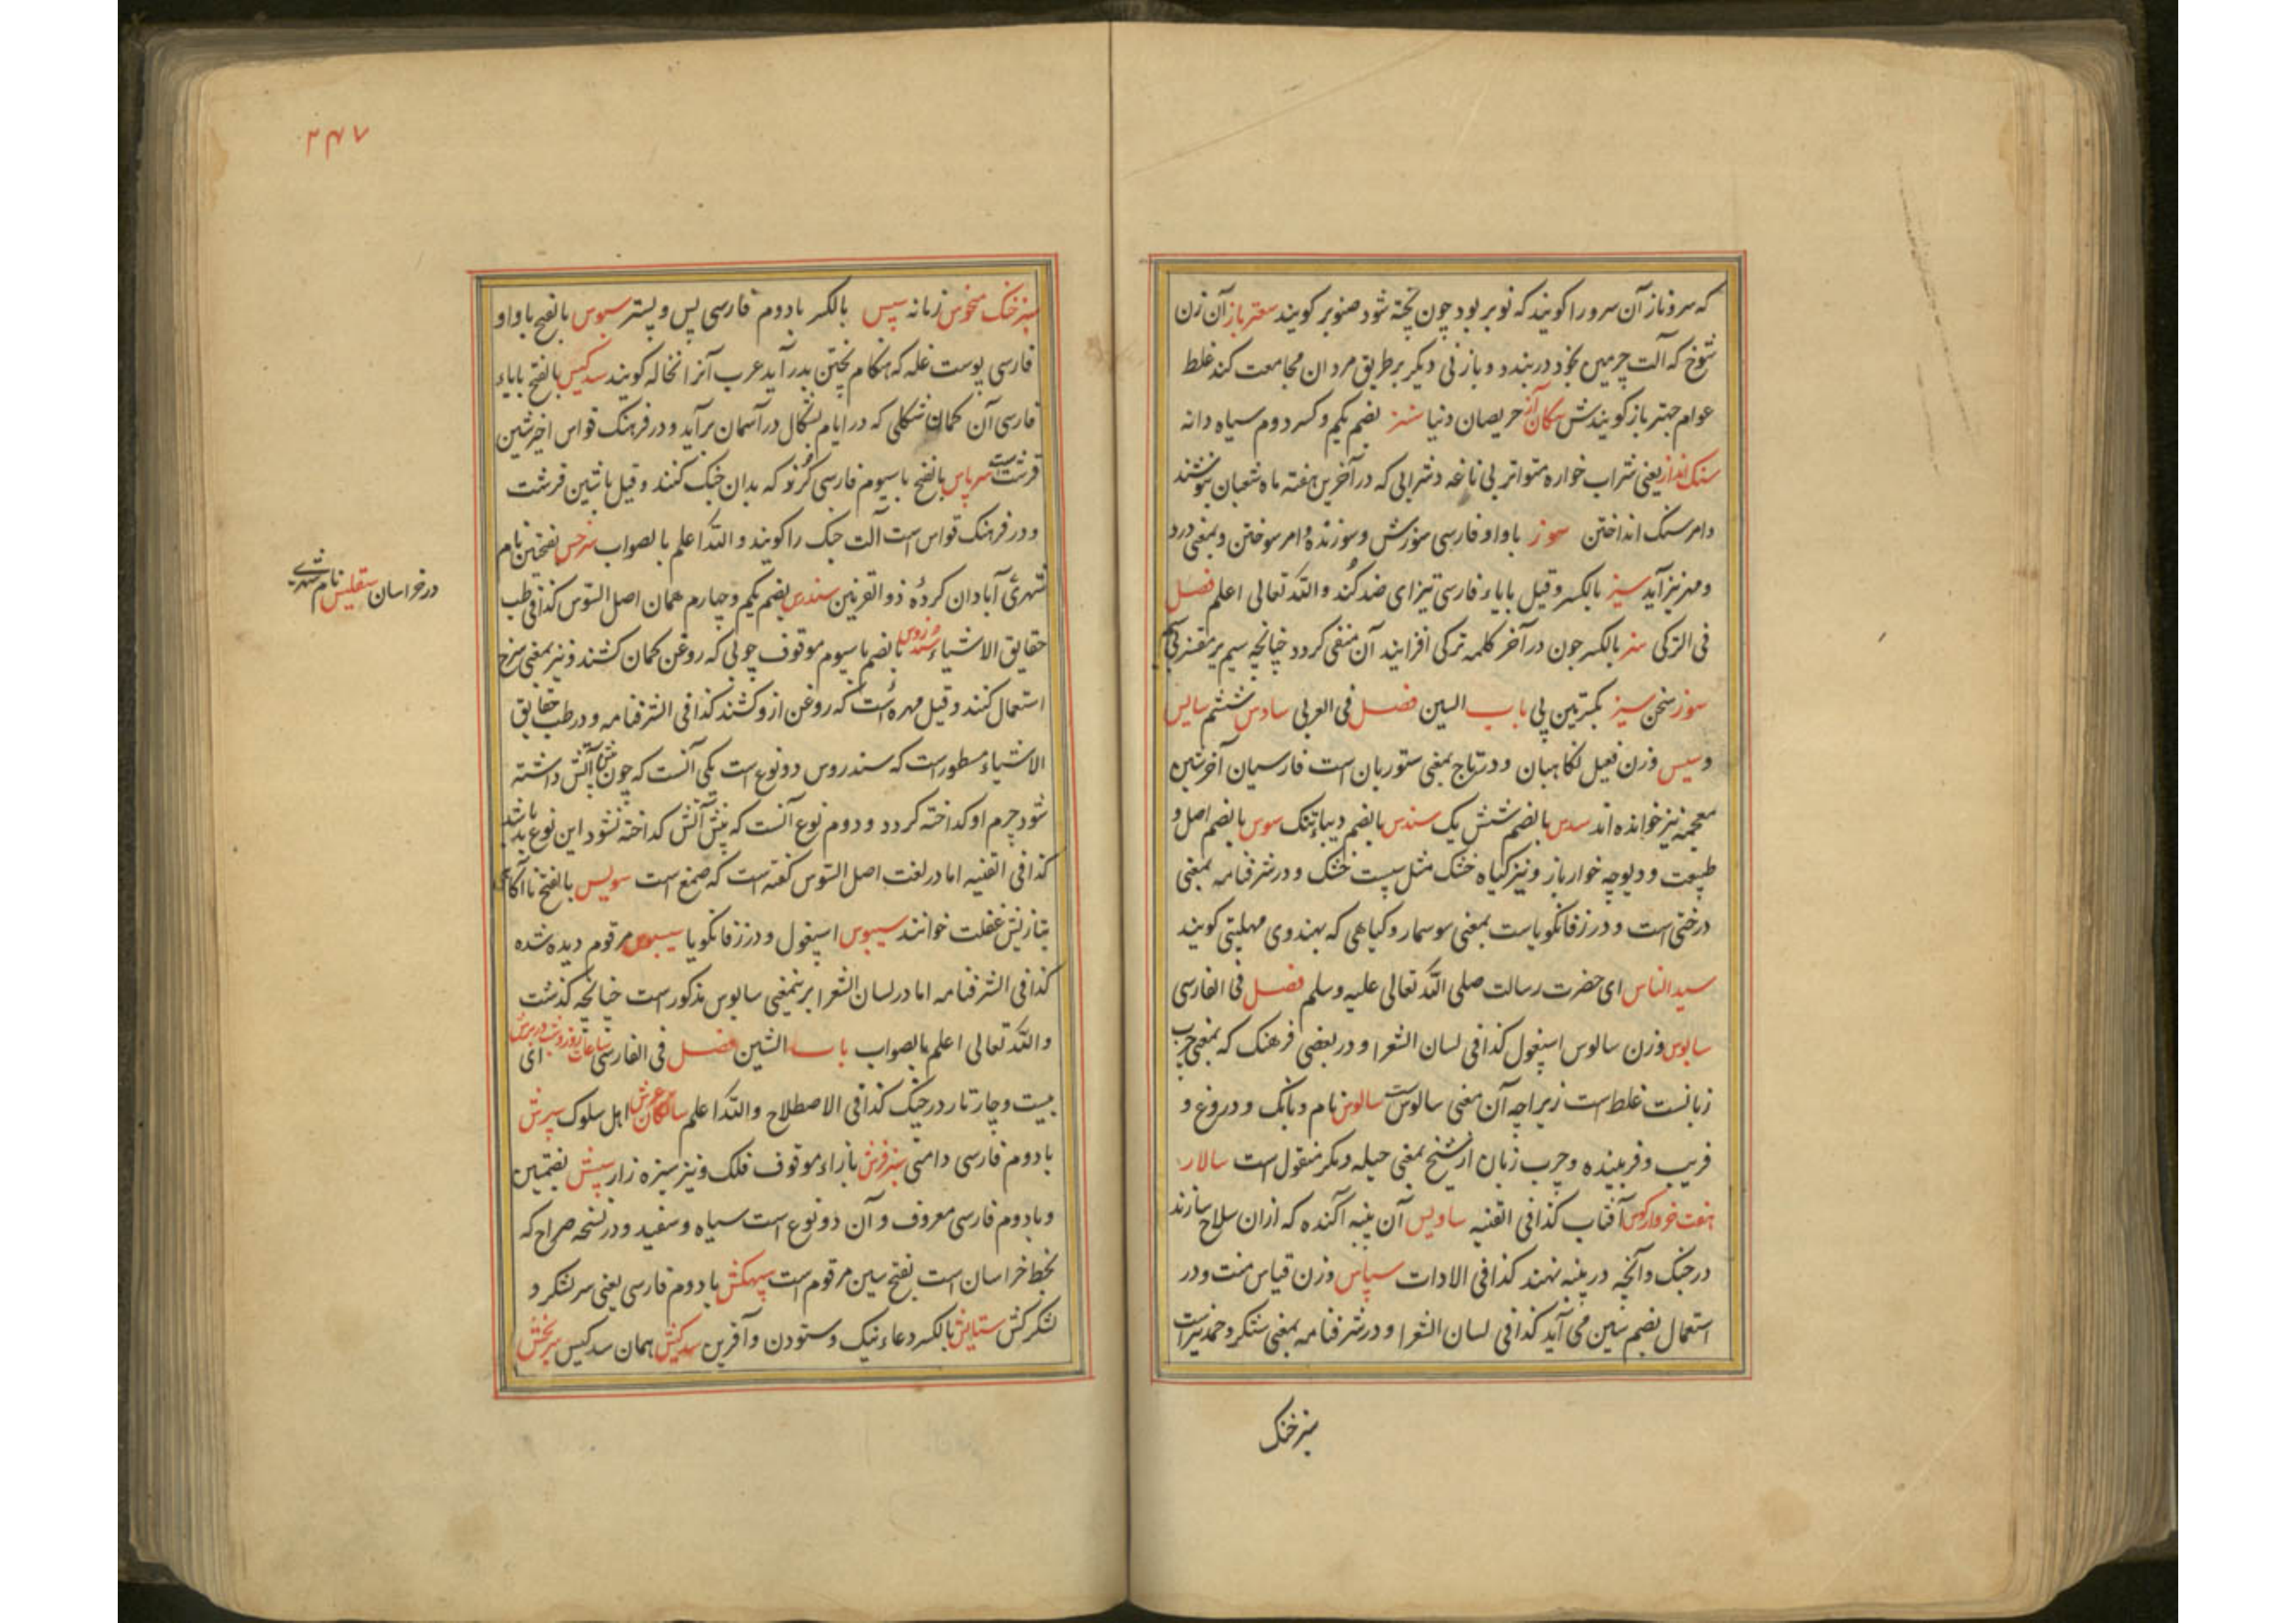 که سروناز آن سرو را کویند که نوبر بود چون پخته شود صنوبر کویند سعتر باز آن زن
شوخ که آلت چرمین بخود دربندد و با زنی دیکر بر طریق مردان مجامعت کند غلط
عوام جتر باز کویندش سکان آز حریصان دنیا شنز بضم یکم وکسر دوم سیاه دانه
سنک انداز یعنی شراب خواره متواتر بی ناغه و شرابی که در آخرین هفته ماه شعبان نوشند
وامر سنک انداختن سوز باواو فارسی سوزش وسوزنده وامر سوختن وبمعنی درد
ومهر نیز آید سیز بالکسر وقیل بایاء فارسی تیز ای ضد کند والله تعالی اعلم فصل
فی الترکی سز بالکسر جون در آخر کلمه ترکی افزایند آن منفی کردد چنانچه سیم بر مقنز
سوز سخن سیز بکسرتین باب السین فصل فی العربی سادس ششم سایس
وسیس وزن فعیل نکاهبان ودر تاج بمعنی ستوربان است فارسیان آخر شین
معجمه نیز خوانده اند سدس بالضم شش یک سندس بالضم دیباء تنک سوس بالضم اصل و
طبیعت ودیوچه خوار باز ونیز کیاه خشک مثل سپست خشک ودر شرفنامه بمعنی
درختی است ودر زفانکویاست بمعنی سوسمار وکیاهی که بهندوی مهلبتی کویند
سید الناس ای حضرت رسالت صلی الله تعالی علیه وسلم فصل فی الفارسی
سابوس وزن سالوس اسپغول کذافی لسان الشعرا ودر بعضی فرهنک که بمعنی چرب
زبانست غلط است زیراچه آن معنی سالوس است سالوس نام وبانک ودروغ و
فریب وفریبنده وچرب زبان از شیخ بمعنی حیله دیکر منقول است سالار
هفت خروار کوس آفتاب کذافی القنیه ساویس آن پنبه آکنده که ازان سلاح سازند
در جنک وآنچه در پنبه نهند کذافی الادات سپاس وزن قیاس منت ودر
استعمال بضم سین می آید کذافی لسان الشعرا ودر شرفنامه بمعنی شکر وحمد نیز است
سبزخنک
۲۴۷
سبزخنک منحوس زمانه سپس بالکسر بادوم فارسی پس وپستر سبوس بالفتح باواو
فارسی پوست غله که هنکام پختن بدر آید عرب آنرا نخاله کویند سدکیس بالفتح بایاء
فارسی آن کمان شکلی که در ایام بشکال در آسمان برآید ودر فرهنک قواس اخیر شین
قرشت است سرپاس بالفتح باسیوم فارسی کرز که بدان جنک کنند وقیل باشین قرشت
ودر فرهنک قواس است آلت جنک را کویند والله اعلم بالصواب سرخس بفتحتین نام
شهری آبادان کرده ذو القرنین سندس بضم یکم وچهارم همان اصل السوس کذافی طب
حقایق الاشیاء سندروس بالضم باسیوم موقوف چوبی که روغن کمان کشند ونیز بمعنی سرخ
استعمال کنند وقیل مهره است که روغن ازو کشند کذافی الشرفنامه ودر طب حقایق
الاشیاء مسطور است که سندروس دو نوع است یکی آنست که چون پیش آتش داشته
شود جرم او کداخته کردد ودوم نوع آنست که پیش آتش کداخته نشود این نوع بد باشد
کذافی القنیه اما در لغت اصل السوس کفته است که صمغ است سویس بالفتح ناآکاهی
بتازیش غفلت خوانند سیبوس اسپغول ودر زفانکویا سیسبوس مرقوم دیده شده
کذافی الشرفنامه اما در لسان الشعرا برینمعنی سابوس مذکور است چنانچه کذشت
والله تعالی اعلم بالصواب باب الشین فصل فی الفارسی ساعات روز وشب دربرش ای
بیست وچار تار در چنک کذافی الاصطلاح والله اعلم سالکان عرش اهل سلوک سپرش
بادوم فارسی دامنی سبز فرش بازاء موقوف فلک ونیز سبزه زار سپش بضمتین
وبادوم فارسی معروف وآن دو نوع است سیاه وسفید ودر نسخه صراح که
بخط خراسان است بفتح سین مرقوم است سپهکش بادوم فارسی یعنی سر لشکر و
لشکر کش ستایش بالکسر دعاء نیک وستودن وآفرین سدکیش همان سدکیس سربخش
در خراسان سقلیس نام شهری